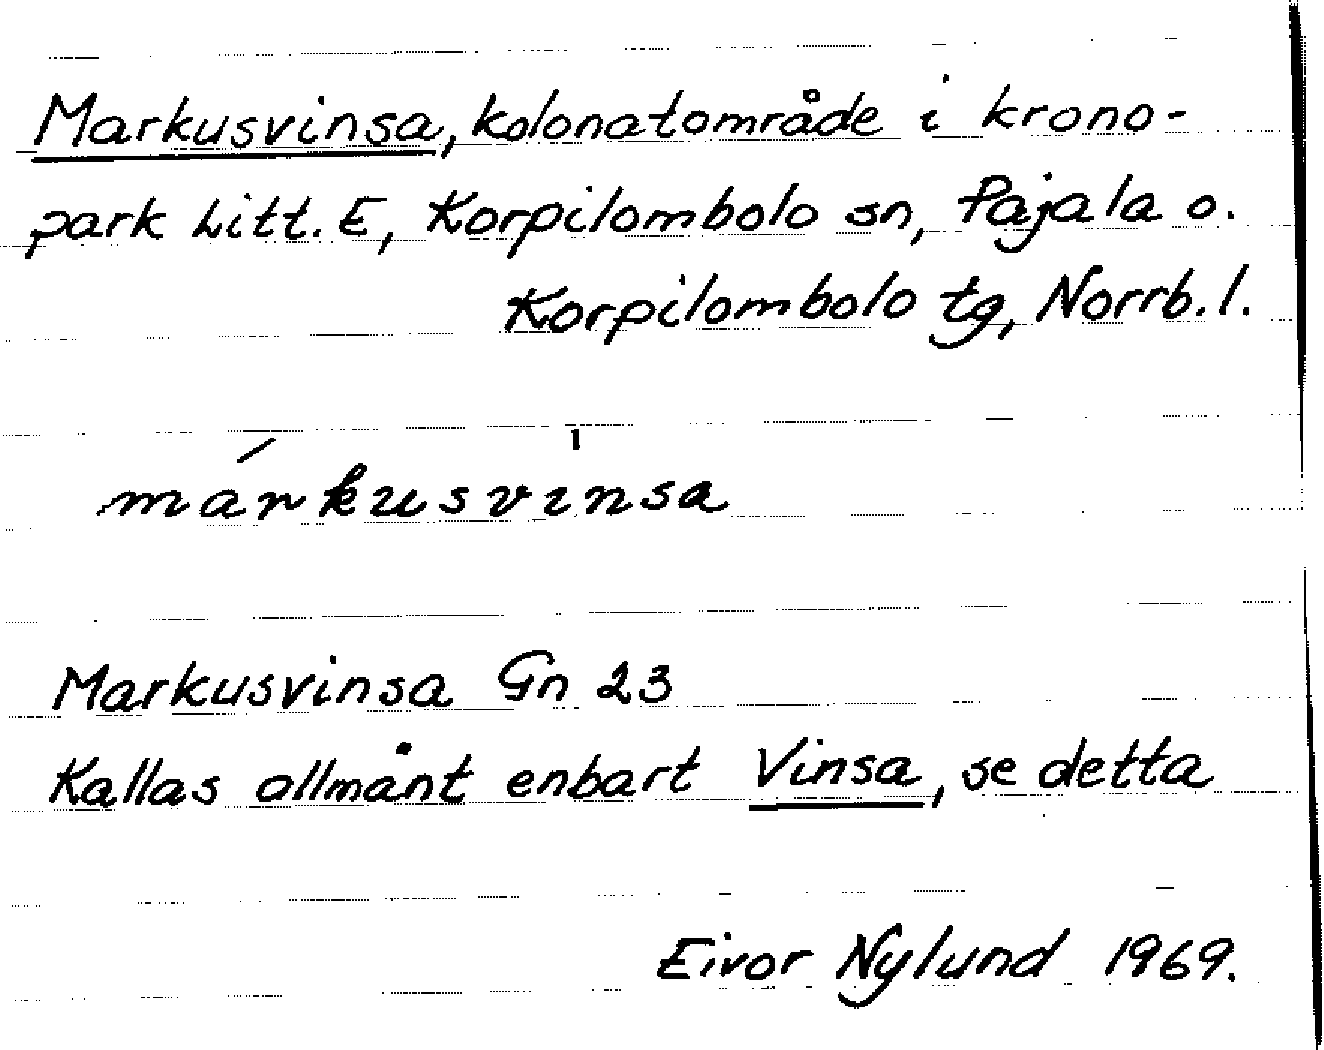 Markusvinsa, kolonatområde i krono-
park Litt. E, Korpilombolo sn, Pajala o.
Korpilombolo tg, Norrb. l.
márkusvìnsa
Markusvinsa Gn 23
Kallas allmänt enbart Vinsa, se detta
Eivor Nylund 1969.